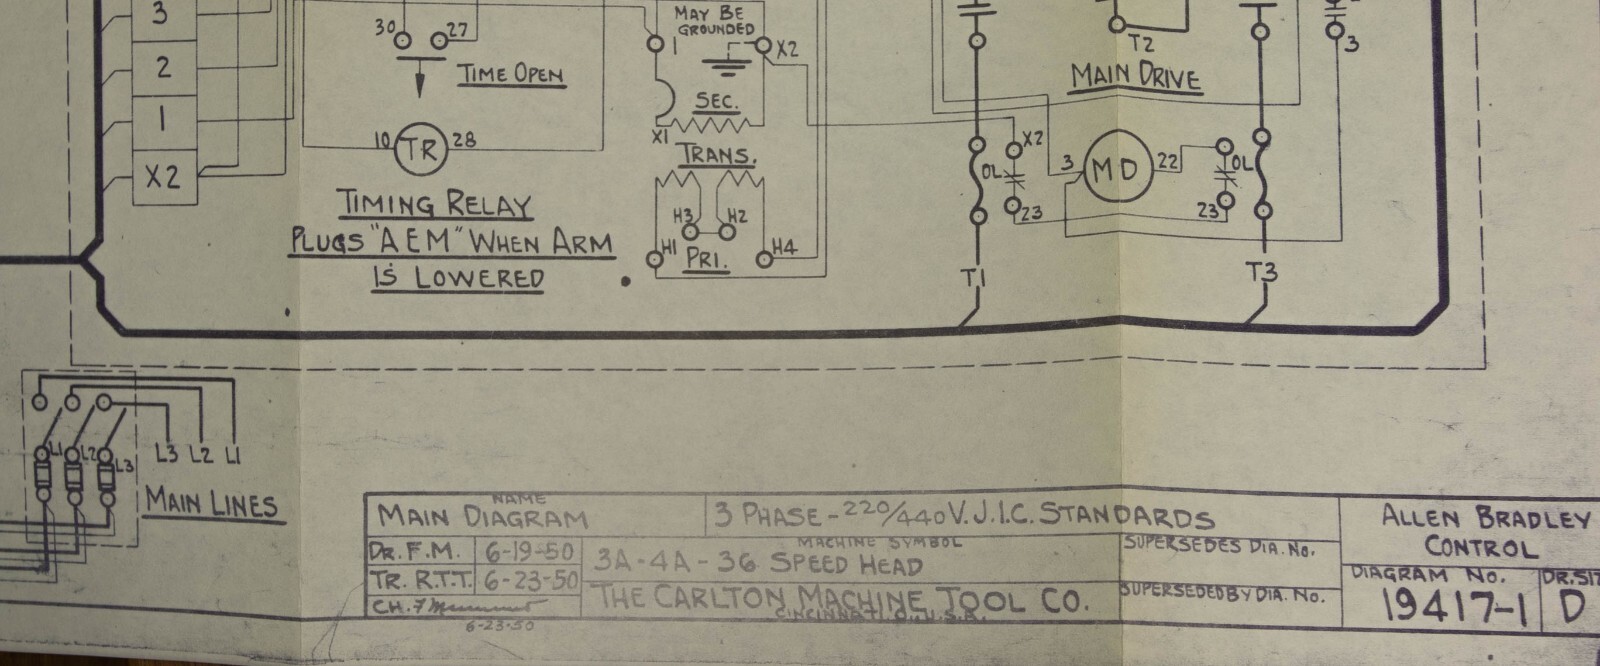 3
2
1
X2
30 27
TIME OPEN
10 TR 28
TIMING RELAY
PLUGS "AEM" WHEN ARM
IS LOWERED
MAY BE
GROUNDED
1 X2
SEC.
X1
TRANS.
H3 H2
H1 H4
PRI.
T2
3
MAIN DRIVE
X2
OL
3 MD 22
OL
23 23
T1 T3
L1 L2 L3 L3 L2 L1
MAIN LINES
NAME
MAIN DIAGRAM
3 PHASE - 220/440V. J.I.C. STANDARDS
DR. F.M. 6-19-50
TR. R.T.T. 6-23-50
CH.
6-23-50
MACHINE SYMBOL
3A-4A-36 SPEED HEAD
THE CARLTON MACHINE TOOL CO.
CINCINNATI. O., U.S.A.
SUPERSEDES DIA. NO.
SUPERSEDED BY DIA. NO.
ALLEN BRADLEY
CONTROL
DIAGRAM NO.
19417-1
DR. SIZ
D